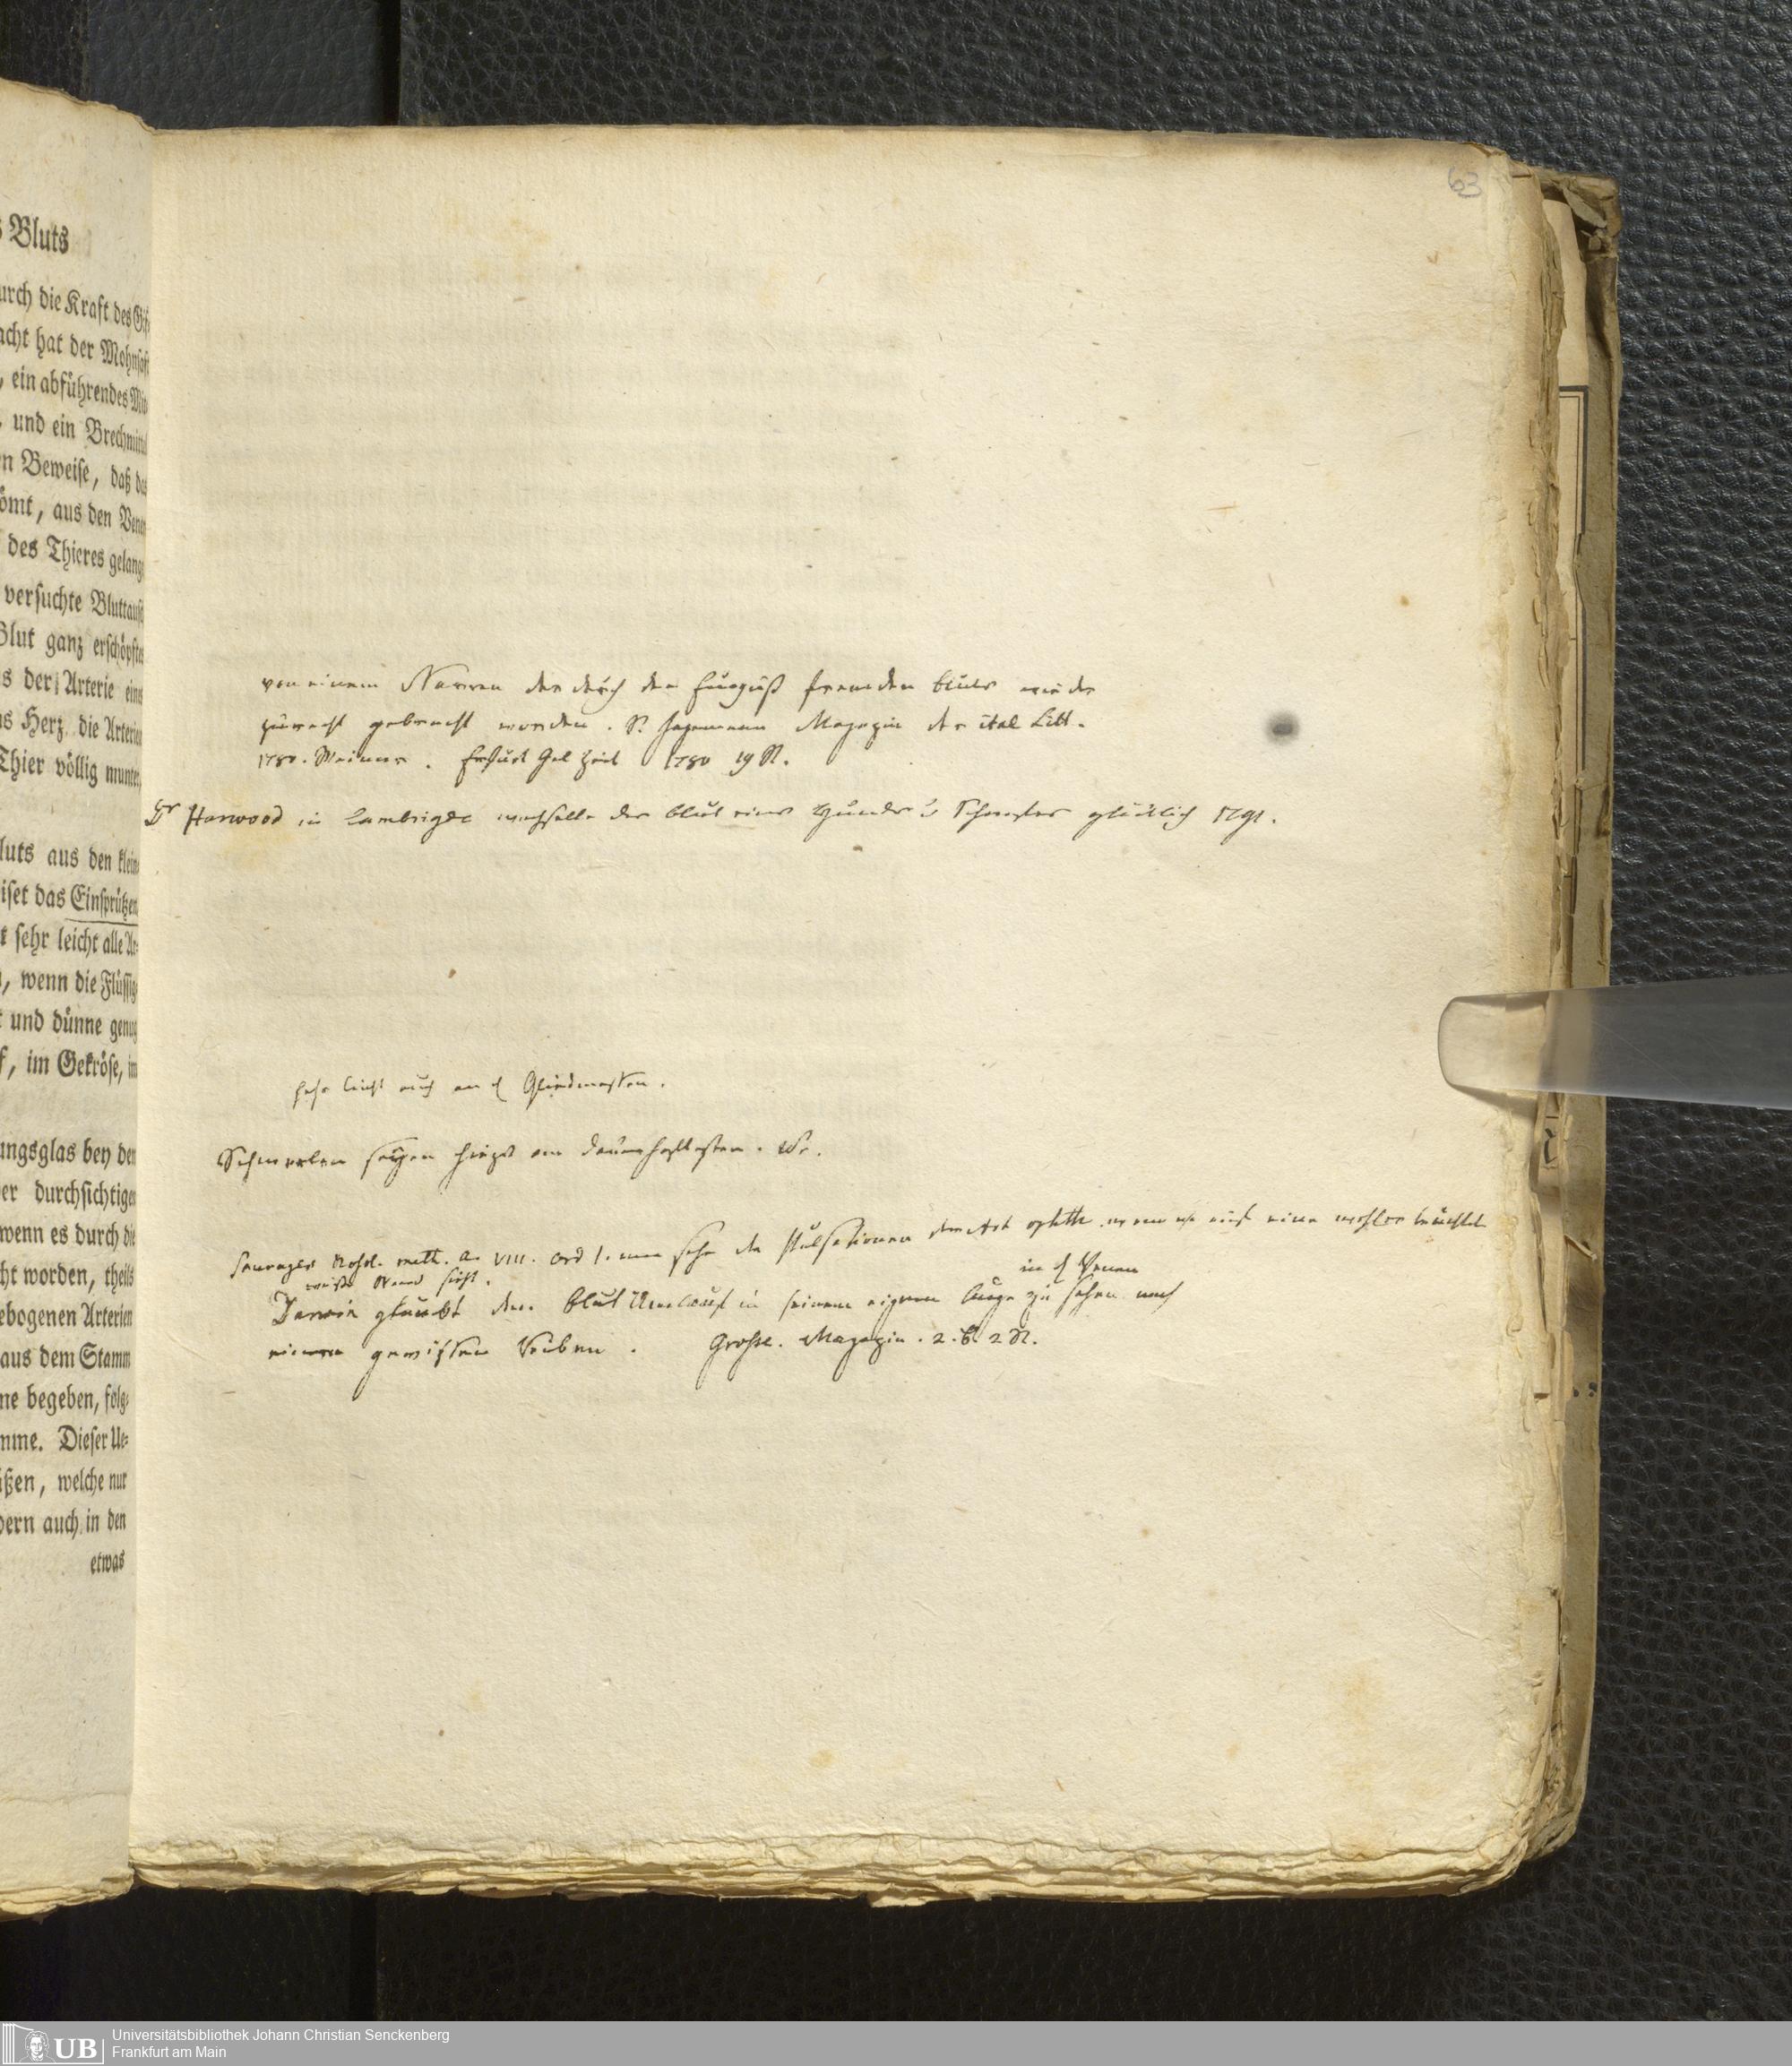 s Bluts
urch die Kraft des Gif-
acht hat der Mohnsaft
, ein abführendes Mit-
, und ein Brechmittel
n Beweise, daß das
ömt, aus den Venen
des Thieres gelange
versuchte Bluttausch
Blut ganz erschöpftes
s der Arterie eines
as Herz die Arterien
Thier völlig munter
luts aus den klein
iset das Einsprützen
t sehr leicht alle Ar-
, wenn die Flüssig-
t und dünne genug
f, im Gekröse, im
ungsglas bey den
er durchsichtigen
wenn es durch die
cht worden, theils
ebogenen Arterien
aus dem Stamm
ne begeben, folg-
mme. Dieser Ue-
ißen, welche nur
dern auch in den
etwas
63
von einem Narren der durch den Einguß fremden Bluts wieder
zurecht gebracht worden. S. Jagemann Magazin der ital Litt.
1780. Weimar. Erfurt Gel Zeit 1780 19 St.
Dr Harwood in Cambrigde wechselte das Blut eines Hundes u Schaafes glücklich 1791.
sehr leicht auch an Gliedmassen.
Schmerlen zeigen
Sauvages Nosol. meth. VIII. ord 1. man sehe die Pulsationen ophth. wenn
weiße Wand sieht.
in Venen
Darwin glaubt den Blut Umlauf in seinem eignen Auge zu sehen nach
einem gewissen Reiben. Grosse. Magazin. 2. B. 2 St.
UB
Universitätsbibliothek Johann Christian Senckenberg
Frankfurt am Main